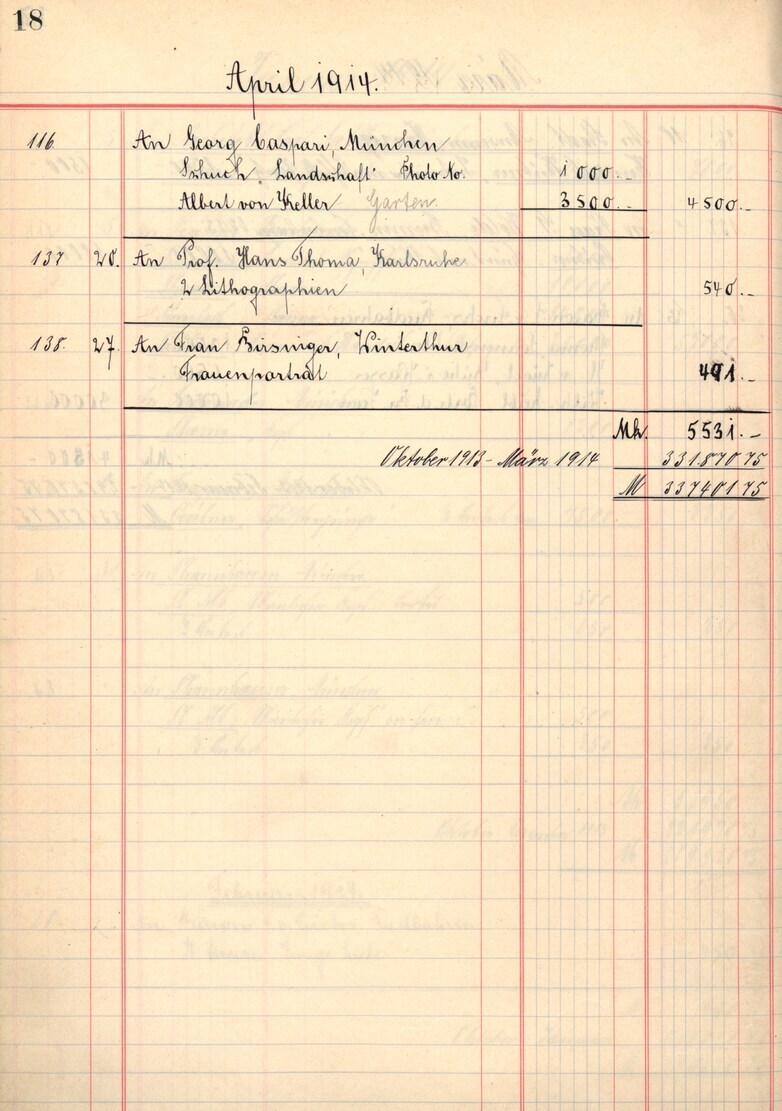 18
April 1914.
116 An Georg Caspari, München
Schuch. Landschaft Photo No. 1000.-
Albert von Keller Garten 3500.- 4500.-
137 20. An Prof. Hans Thoma, Karlsruhe
2 Lithographien 540.-
138. 27. An Frau Birsninger, Winterthur
Frauenporträt 491.-
Mk. 5531.-
Oktober 1913 - März 1914 331870 75
M 337401 75